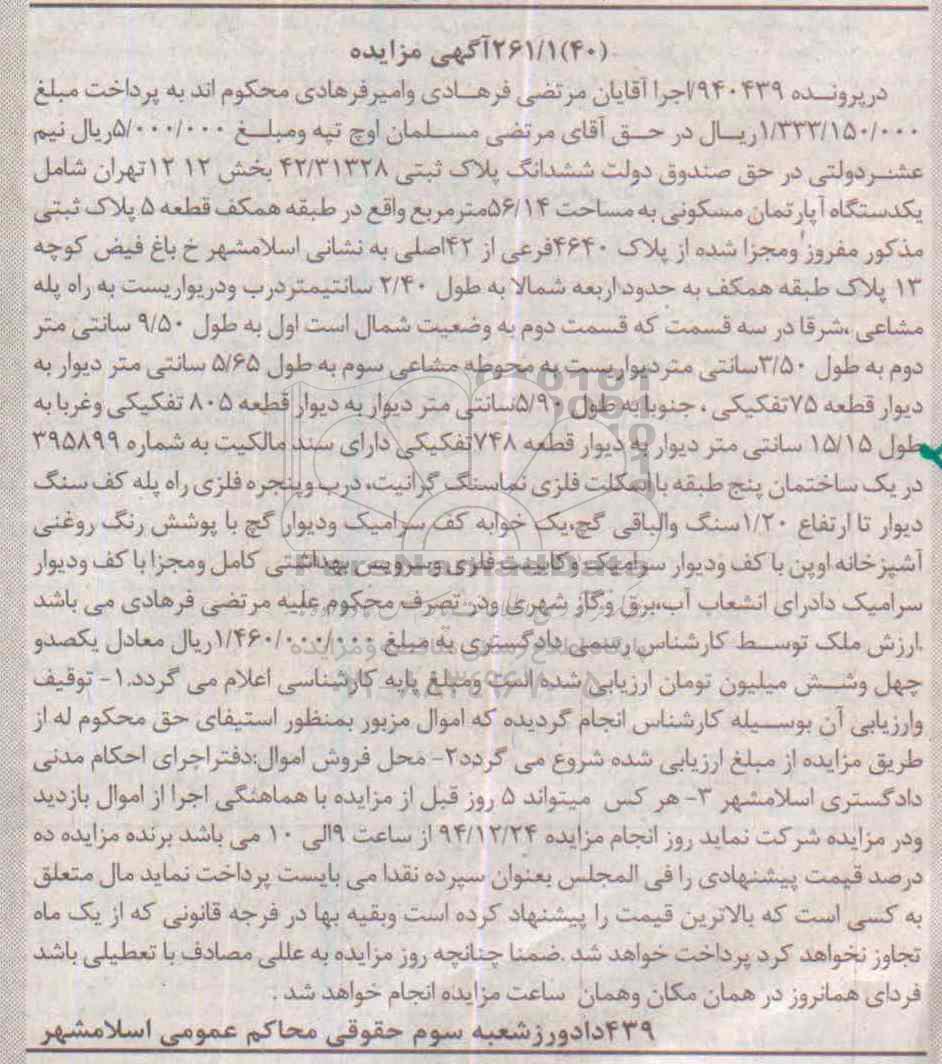 ۲۶۱/۱(۴۰)آگهی مزایده
درپرونده ۹۴۰۴۳۹/اجرا آقایان مرتضی فرهادی وامیرفرهادی محکوم اند به پرداخت مبلغ
۱/۳۳۳/۱۵۰/۰۰۰ریال در حق آقای مرتضی مسلمان اوچ تپه ومبلغ ۵/۰۰۰/۰۰۰ریال نیم
عشردولتی در حق صندوق دولت ششدانگ پلاک ثبتی ۴۲/۳۱۳۲۸ بخش ۱۲ ۱۲تهران شامل
یکدستگاه آپارتمان مسکونی به مساحت ۵۶/۱۴مترمربع واقع در طبقه همکف قطعه ۵ پلاک ثبتی
مذکور مفروز ومجزا شده از پلاک ۴۶۴۰فرعی از ۴۲اصلی به نشانی اسلامشهر خ باغ فیض کوچه
۱۳ پلاک طبقه همکف به حدود اربعه شمالا به طول ۲/۴۰ سانتیمتردرب ودیواریست به راه پله
مشاعی ،شرقا در سه قسمت که قسمت دوم به وضعیت شمال است اول به طول ۹/۵۰ سانتی متر
دوم به طول ۳/۵۰سانتی متردیواریست به محوطه مشاعی سوم به طول ۵/۶۵ سانتی متر دیوار به
دیوار قطعه ۷۵تفکیکی ، جنوبا به طول ۵/۹۰سانتی متر دیوار به دیوار قطعه ۸۰۵ تفکیکی وغربا به
طول ۱۵/۱۵ سانتی متر دیوار به دیوار قطعه ۷۴۸تفکیکی دارای سند مالکیت به شماره ۳۹۵۸۹۹
در یک ساختمان پنج طبقه با اسکلت فلزی نماسنگ گرانیت، درب وپنجره فلزی راه پله کف سنگ
دیوار تا ارتفاع ۱/۲۰سنگ والباقی گچ،یک خوابه کف سرامیک ودیوار گچ با پوشش رنگ روغنی
آشپزخانه اوپن با کف ودیوار سرامیک وکابینت فلزی وسرویس بهداشتی کامل ومجزا با کف ودیوار
سرامیک دادرای انشعاب آب،برق وگاز شهری ودر تصرف محکوم علیه مرتضی فرهادی می باشد
.ارزش ملک توسط کارشناس رسمی دادگستری به مبلغ ۱/۴۶۰/۰۰۰/۰۰۰ریال معادل یکصدو
چهل وشش میلیون تومان ارزیابی شده است ومبلغ پایه کارشناسی اعلام می گردد.۱- توقیف
وارزیابی آن بوسیله کارشناس انجام گردیده که اموال مزبور بمنظور استیفای حق محکوم له از
طریق مزایده از مبلغ ارزیابی شده شروع می گردد۲- محل فروش اموال:دفتراجرای احکام مدنی
دادگستری اسلامشهر ۳- هر کس میتواند ۵ روز قبل از مزایده با هماهنگی اجرا از اموال بازدید
ودر مزایده شرکت نماید روز انجام مزایده ۹۴/۱۲/۲۴ از ساعت ۹الی ۱۰ می باشد برنده مزایده ده
درصد قیمت پیشنهادی را فی المجلس بعنوان سپرده نقدا می بایست پرداخت نماید مال متعلق
به کسی است که بالاترین قیمت را پیشنهاد کرده است وبقیه بها در فرجه قانونی که از یک ماه
تجاوز نخواهد کرد پرداخت خواهد شد .ضمنا چنانچه روز مزایده به عللی مصادف با تعطیلی باشد
فردای همانروز در همان مکان وهمان ساعت مزایده انجام خواهد شد .
۴۳۹دادورزشعبه سوم حقوقی محاکم عمومی اسلامشهر